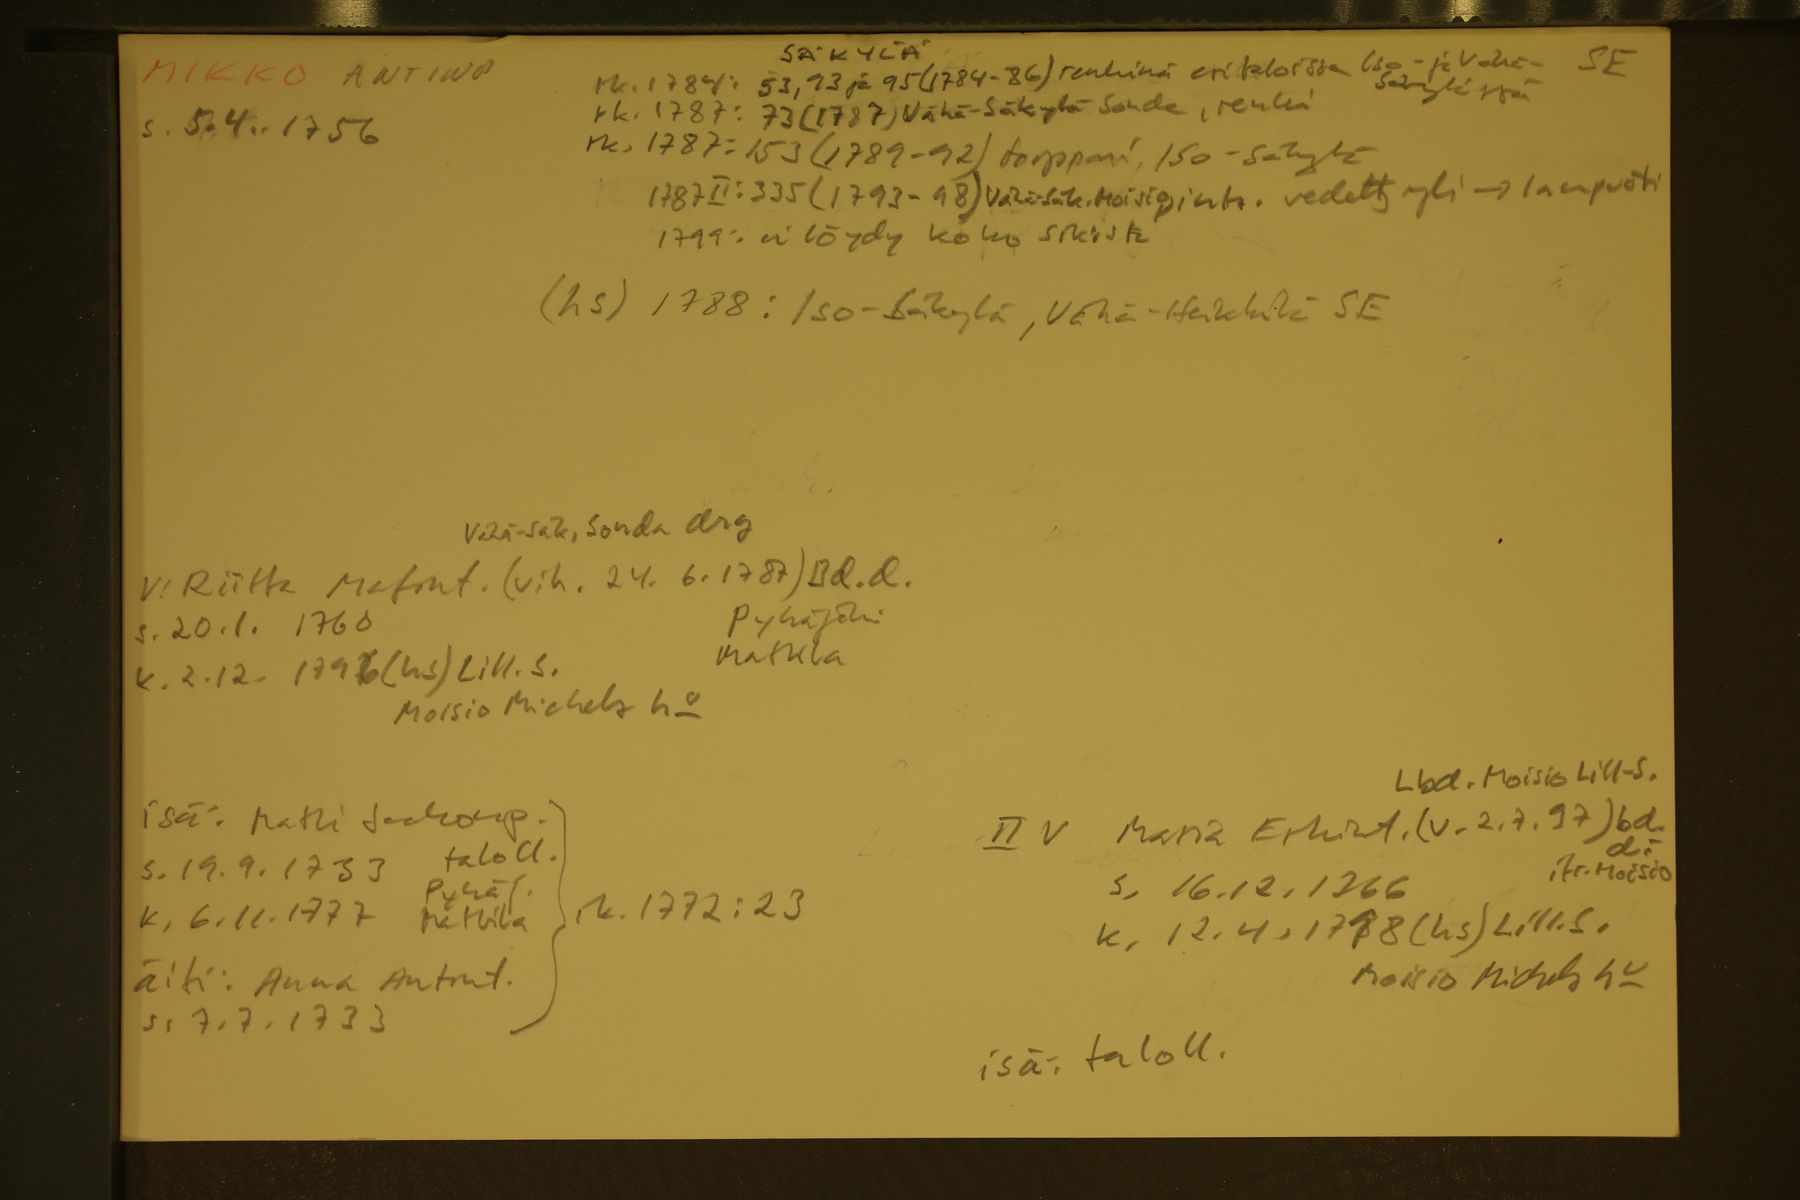 SÄKYLÄ
MIKKO ANTINP SE
rk. 1784: 53, 93 ja 95 (1784-86) renkinä eri taloissa Iso- ja Vähä-
Säkylässä
s. 5.4. 1756
rk. 1787: 73 (1787) Vähä-Säkylä Sonda, renki
rk. 1787: 153 (1789-92) torppari, Iso-Säkylä
1787 II: 335 (1793-98) Vähä-Säk. Moisio → lampuoti
1799: ei löydy koko
(hs) 1788: Iso-Säkylä, Vähä-Heikkilä SE
Vähä-Säk, Sonda drg
V: Riitta Matint. (vih. 24. 6. 1787) Bd.d.
s. 20.1. 1760 Pyhäjoki
Matkla
k. 2.12. 1796 (hs) Lill. S.
Moisio Michels hu
Lbd. Moisio Lill-S.
isä: Matti Jaakonp.
II V Maria Erkint. (v. 2.7.97) bd.
d:
s. 19.9. 1733 taloll.
Pyhäj.
s. 16.12. 1766
k. 6.11. 1777 Mattila rk. 1772: 23
k. 12.4. 1798 (hs) Lill. S.
Moisio Michels hu
äiti: Anna Antint.
s. 7.7. 1733
isä: taloll.